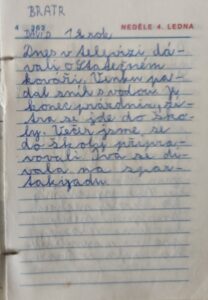 BRATR
4 DAVID 12 rok NEDĚLE 4. LEDNA
Dnes v televizi dá-
vali o Statečném
kováři. Venku pa-
dal sníh s vodou. Je
konec prázdnin, zí-
tra se jde do ško-
ly. Večer jsme se
do školy připra-
vovali. Iva se dí-
vala na spar-
takyadu.